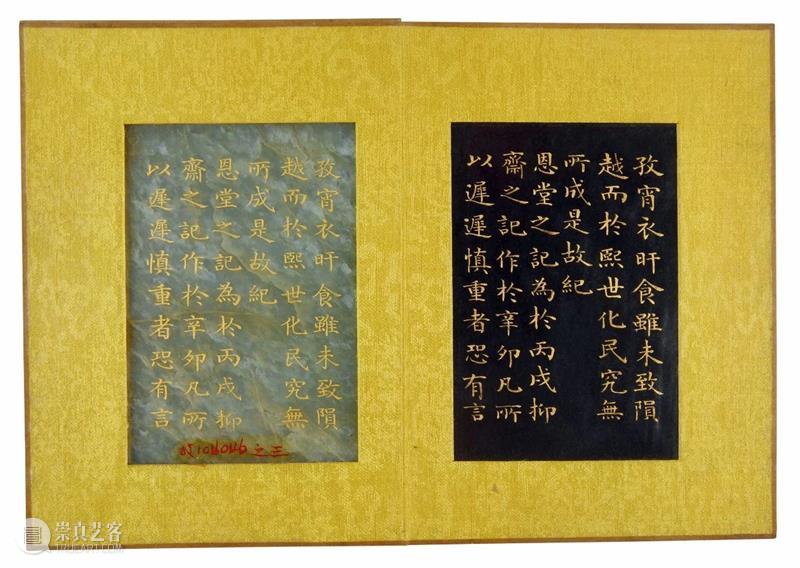 孜宵衣旰食雖未致隕
越而於熙世化民究無
所成是故紀
恩堂之記為於丙戌抑
齋之記作於辛卯凡所
以遲遲慎重者恐有言
孜宵衣旰食雖未致隕
越而於熙世化民究無
所成是故紀
恩堂之記為於丙戌抑
齋之記作於辛卯凡所
以遲遲慎重者恐有言
故104046之三
崇真艺客
TRUEART.COM